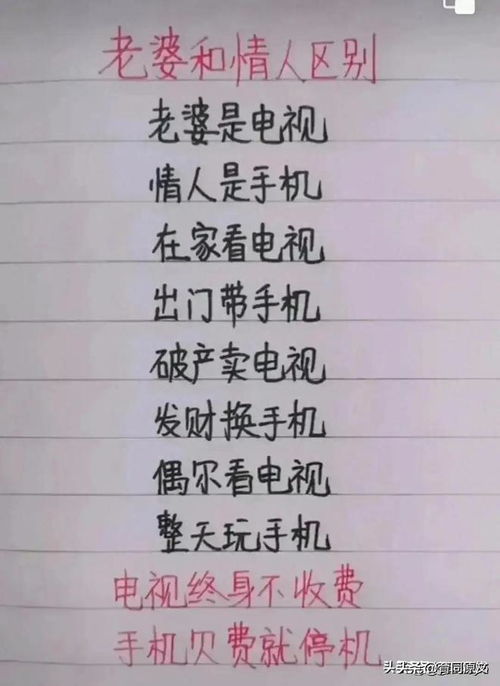 老婆和情人区别
老婆是电视
情人是手机
在家看电视
出门带手机
破产卖电视
发财换手机
偶尔看电视
整天玩手机
电视终身不收费
手机欠费就停机